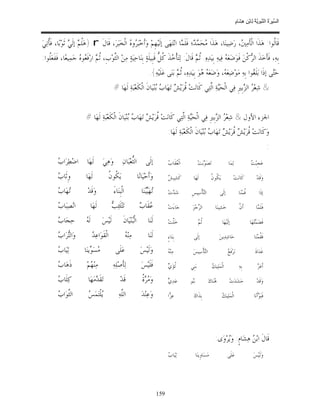 السيرة النبوية لابن هشام
قَالُوا: هَذَا الْأَمِينُ، رَضِينَا، هَذَا مُحَمَّدٌ؛ فَلَمَّا انْتَهَى إلَيْهِمْ وَأَخْبَرُوهُ الْخَبَرَ، قَالَ r {هَلُمَّ إلَيَّ ثَوْبًا، فَأُتِيَ
بِهِ، فَأَخَذَ الرُّكْنَ فَوَضَعَهُ فِيهِ بِيَدِهِ. ثُمَّ قَالَ: لِتَأْخُذْ كُلُّ قَبِيلَةٍ بِنَاحِيَةٍ مِنْ الثَّوْبِ، ثُمَّ ارْفَعُوهُ جَمِيعًا، فَفَعَلُوا:
حَتَّى إذَا بَلَغُوا بِهِ مَوْضِعَهُ، وَضَعَهُ هُوَ بِيَدِهِ، ثُمَّ بَنَى عَلَيْهِ}.
& شِعْرُ الزُّبَيْرِ فِي الْحَيَّةِ الَّتِي كَانَتْ قُرَيْشٌ تَهَابُ بُنْيَانَ الْكَعْبَةِ لَهَا #
الجزء الأول & شِعْرُ الزُّبَيْرِ فِي الْحَيَّةِ الَّتِي كَانَتْ قُرَيْشٌ تَهَابُ بُنْيَانَ الْكَعْبَةِ لَهَا #
وَكَانَتْ قُرَيْشٌ تَهَابُ بُنْيَانَ الْكَعْبَةِ لَهَا
:
عَجِبْتُ لِمَا تَصَوَّبَتْ الْعُقَابُ إلَى الثُّعْبَانِ وَهِيَ لَهَا اضْطِرَابُ
وَقَدْ كَانَتْ يَكُونُ لَهَا كَشِيشٌ وَأَحْيَانًا يَكُونُ لَهَا وِثَابُ
إذَا قُمْنَا إلَى التَّأْسِيسِ شَدَّتْ تُهَيِّبُنَا الْبِنَاءَ وَقَدْ تُهَابُ
فَلَمَّا أَنْ خَشِينَا الرِّجْزَ جَاءَتْ عُقَابٌ تَتْلَئِبُّ لَهَا انْصِبَابُ
فَضَمَّتْهَا إلَيْهَا ثُمَّ خَلَّتْ لَنَا الْبُنْيَانَ لَيْسَ لَهُ حِجَابُ
فَقُمْنَا حَاشِدِينَ إلَى بِنَاءٍ لَنَا مِنْهُ الْقَوَاعِدُ وَالتُّرَابُ
غَدَاةَ نَرْفَعُ التَّأْسِيسَ مِنْهُ وَلَيْسَ عَلَى مُسَوِّينَا ثِيَابُ
أَعَزَّ بِهِ الْمَلِيكُ بَنِي لُؤَيٍّ فَلَيْسَ لِأَصْلِهِ مِنْهُمْ ذَهَابُ
وَقَدْ حَشَدَتْ هُنَاكَ بَنُو عَدِيٍّ وَمُرَّةُ قَدْ تَقَدَّمَهَا كِلَابُ
فَبَوَّأَنَا الْمَلِيكُ بِذَاكَ عِزًّا وَعِنْدَ اللَّهِ يُلْتَمَسُ الثَّوَابُ
قَالَ ابْنُ هِشَامٍ: وَيُرْوَى
وَلَيْسَ عَلَى مَسَاوِينَا ثِيَابُ
159